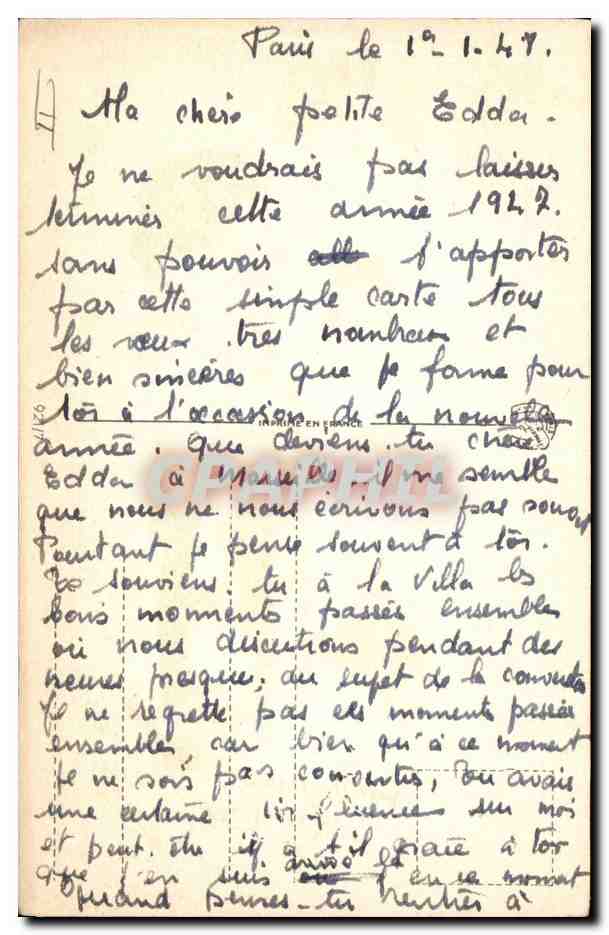 Paris le 1er 1. 47.
II
Ma chère petite Edda.
Je ne voudrais pas laisser
terminer cette année 1947.
sans pouvoir t'apporter
par cette simple carte tous
les vœux très nombreux et
bien sincères que je forme pour
toi à l'occasion de la nouvelle
IMPRIMÉ EN FRANCE
année. Que deviens-tu chère
Edda à Marseille - il me semble
que nous ne nous écrivons pas souvent
CPAPHIL
Pourtant je pense souvent à toi.
Te souviens-tu à la Villa les
bons moments passés ensembles
où nous discutions pendant des
heures presque, du sujet de la
Je ne regrette pas ces moments passés
ensembles car bien qu'à ce moment
je ne sois pas convertie, tu avais
une certaine influence sur moi
et peut être grâce à toi
que j'en suis en ce moment
Quand penses-tu rentrer à